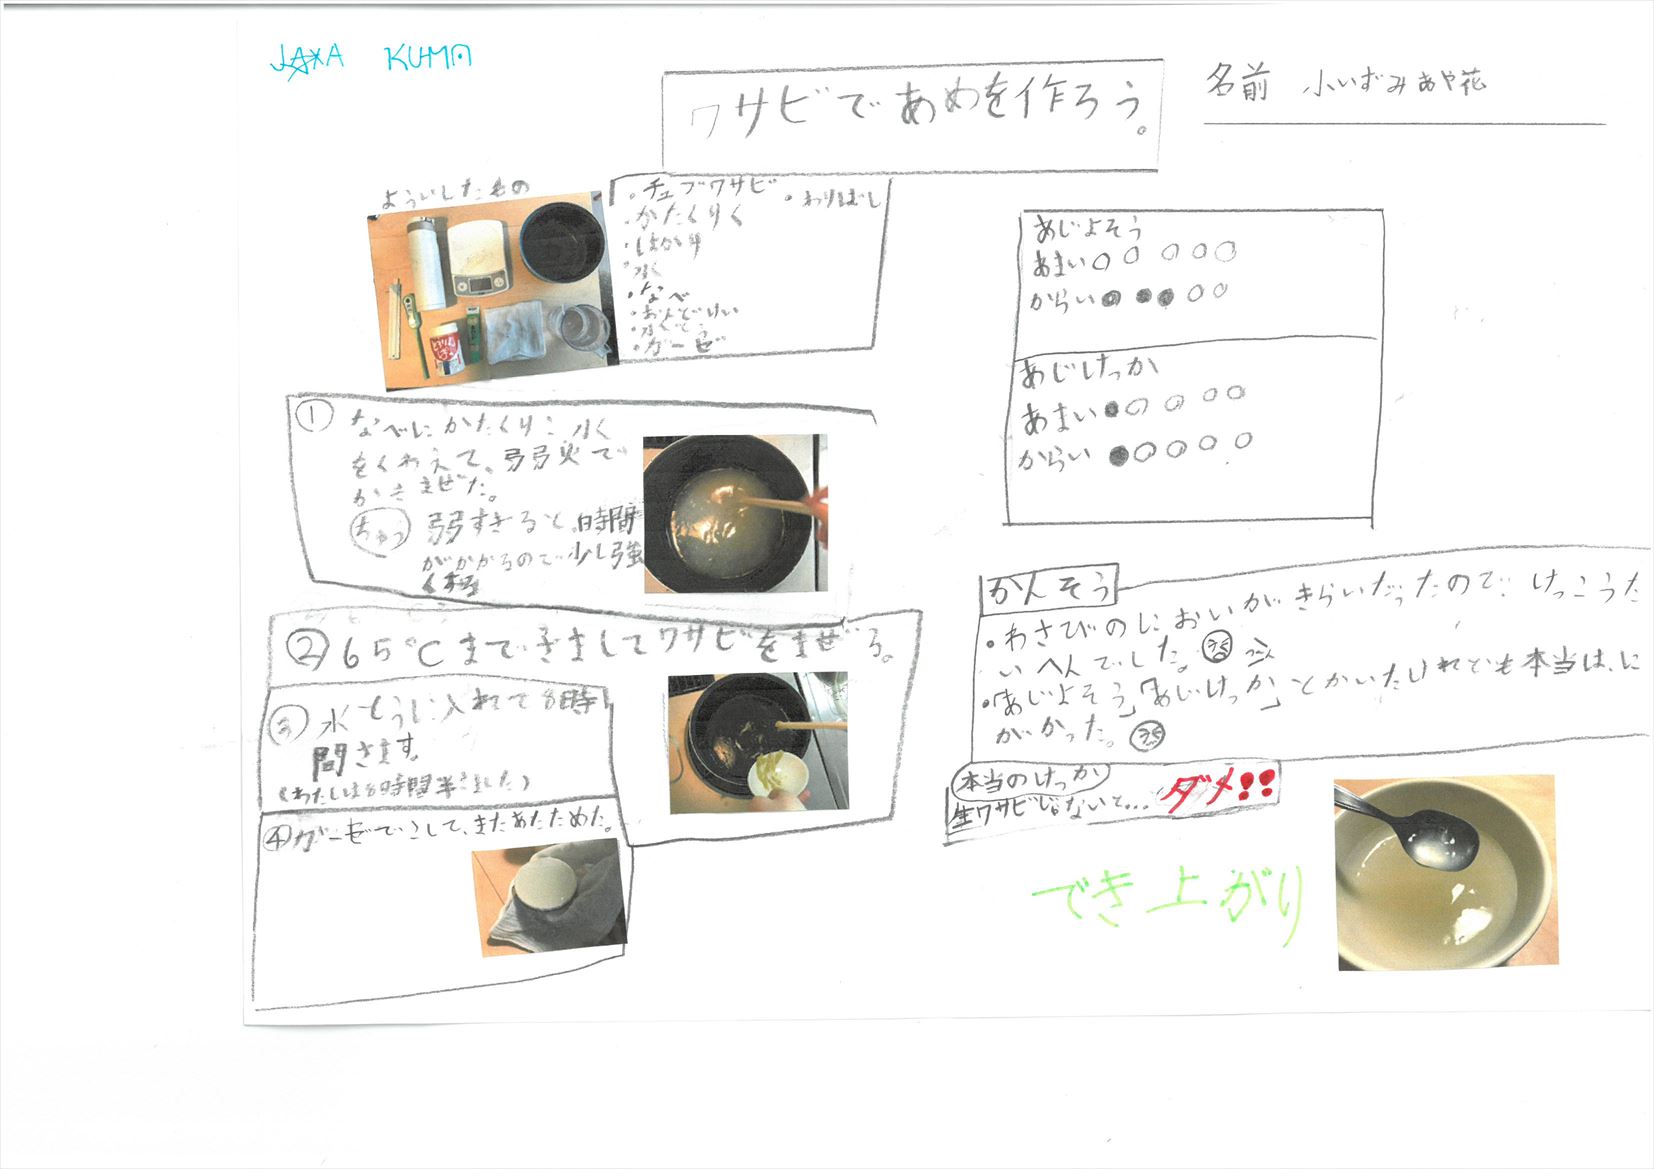 JAXA KUMA
ワサビであめを作ろう。
名前 小いずみあや花
よういしたもの
・チューブワサビ
・わりばし
・かたくりく
・はかり
・水
・なべ
・おんどけい
・水とう
・ガーゼ
① なべにかたくりこ 水
をくわえて、弱弱火で
かきまぜた。
ちゅう 弱すぎると時間
がかかるので少し強
く
② 65℃までさましてワサビをまぜる。
③ 水とうに入れて8時
間さます。
(わたしは8時間半さました)
④ ガーゼでこして、またあたためた。
あじよそう
あまい○○○○○
からい●●●○○
あじけっか
あまい●○○○○
からい●○○○○
かんそう
・わさびのにおいがきらいだったので けっこうた
いへんでした。
・「あじよそう」「あじけっか」とかいたけれども本当は、に
がかった。
本当のけっか
生ワサビじゃないと... ダメ!!
でき上がり